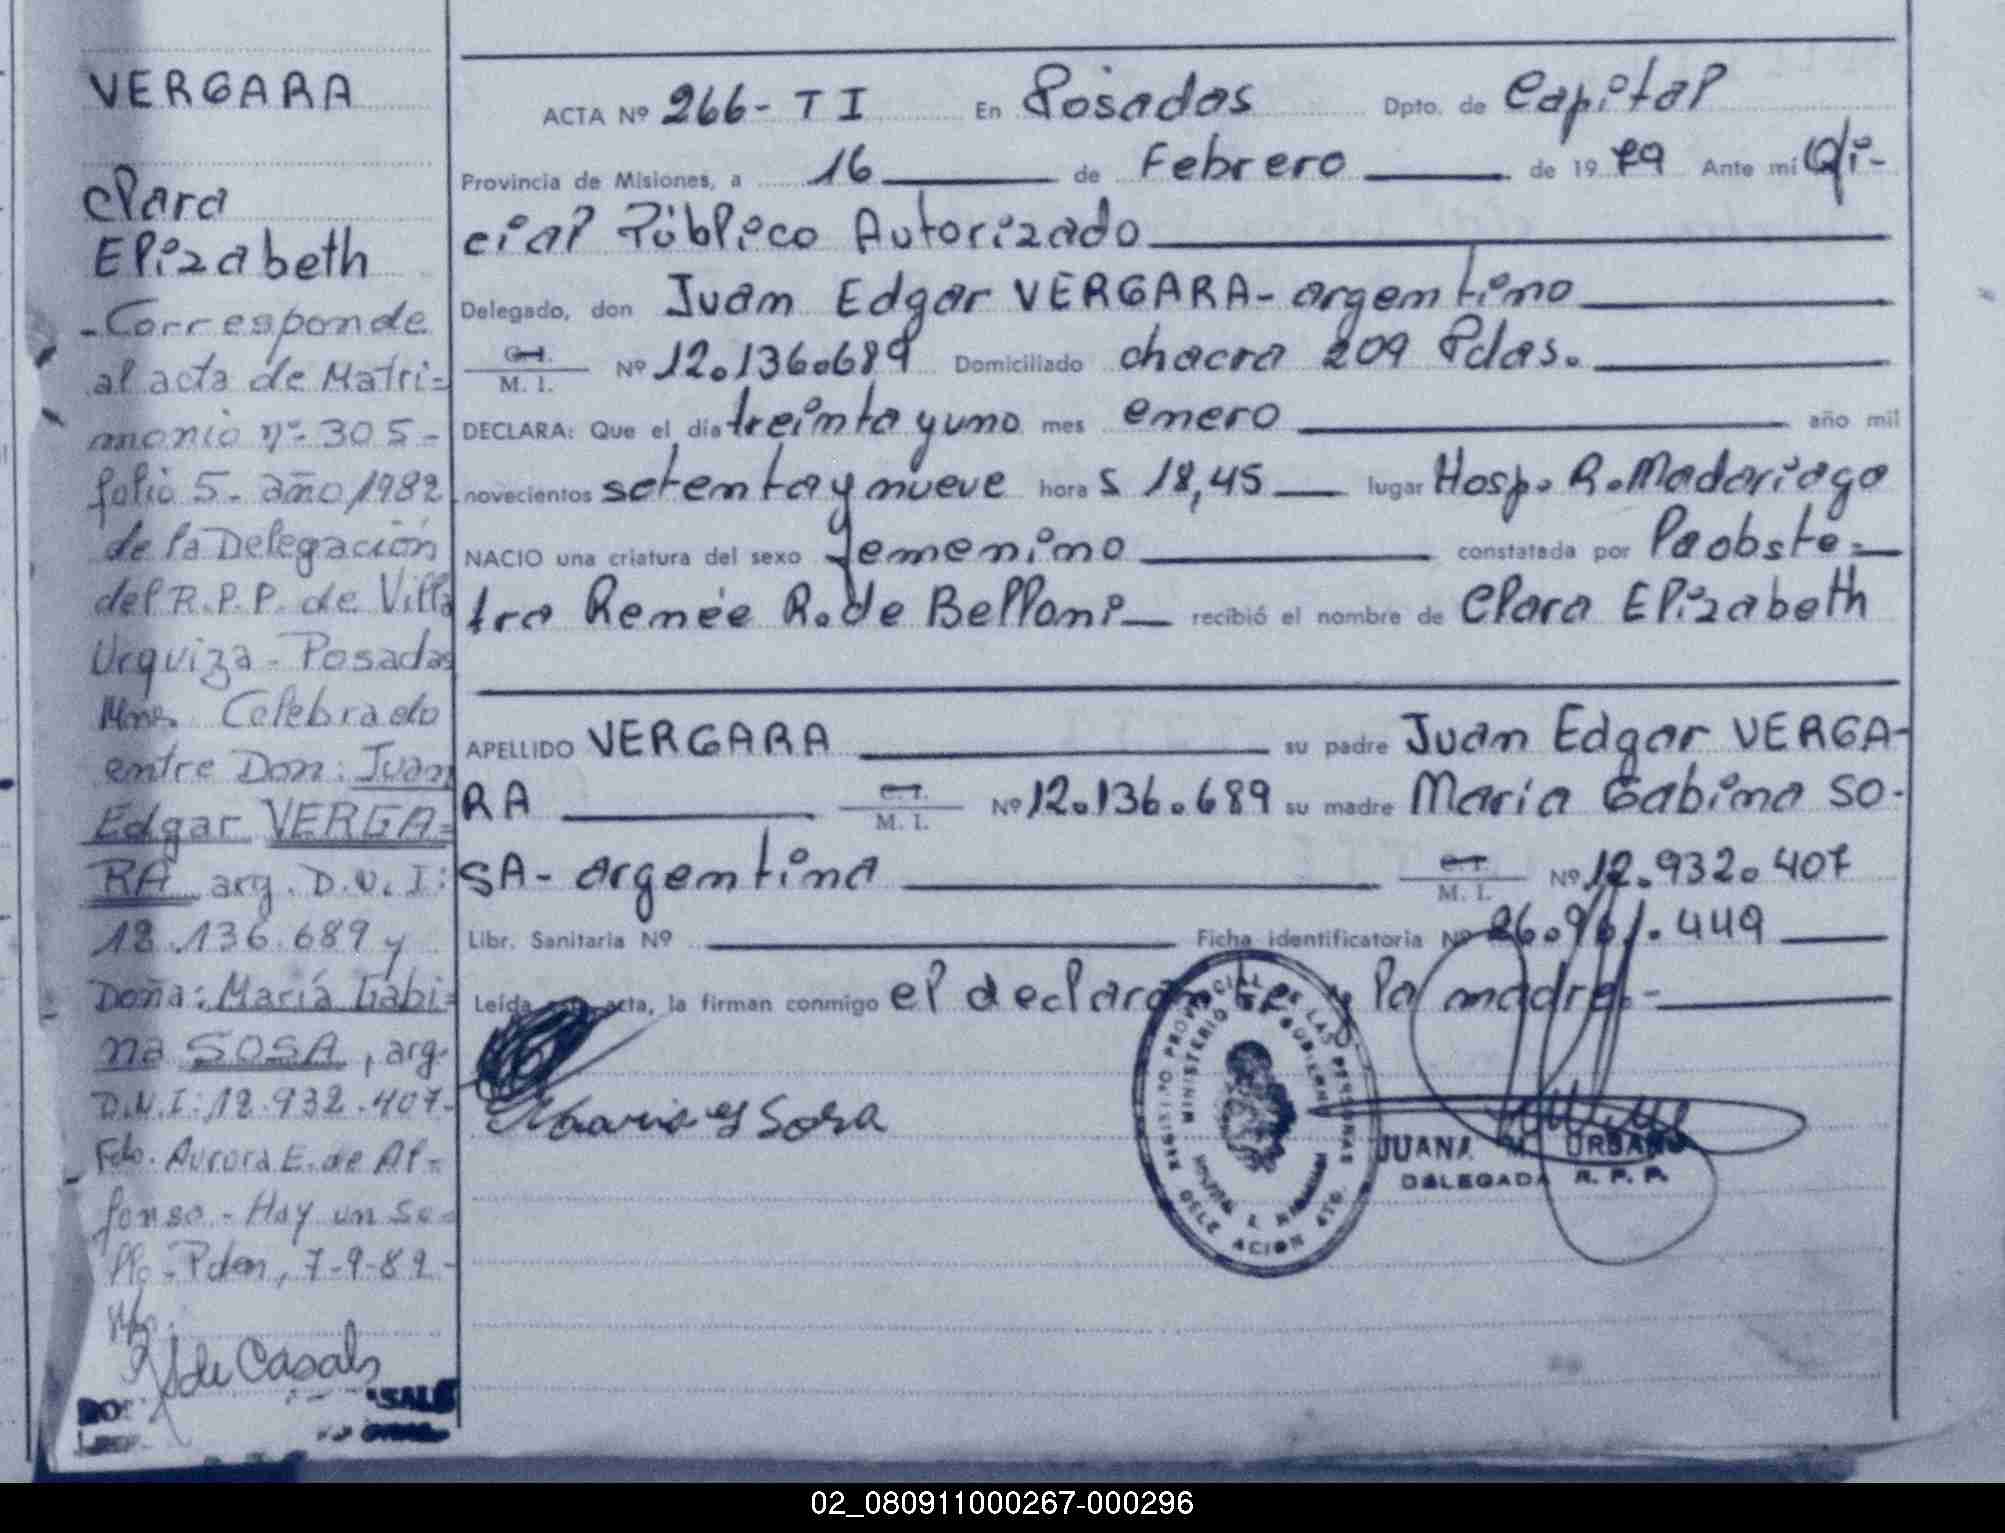 VERGARA
Clara
Elizabeth
- Corresponde
al acta de Matri=
monio nº 305-
folio 5- año 1982
de la Delegación
del R.P.P. de Villa
Urquiza - Posadas
Mnes. Celebrado
entre Don: Juan
Edgar VERGA=
RA arg. D.N.I:
12.136.689 y
Doña: María Gabi=
na SOSA, arg.
D.N.I: 12.932.407-
Fdo. Aurora E. de Al=
fonso - Hay un se=
llo - Pdas, 7-9-82-
de Casals
ACTA Nº 266- T I En Posadas Dpto. de Capital
Provincia de Misiones, a 16 de Febrero de 19 79 Ante mí Ofi-
cial Público Autorizado
Delegado, don Juan Edgar VERGARA- argentino
C.I. M. I. Nº 12.136.689 Domiciliado chacra 209 Pdas.
DECLARA: Que el día treinta y uno mes enero año mil
novecientos setenta y nueve hora s 18,45 lugar Hosp. R. Madariaga
NACIO una criatura del sexo femenino constatada por la obste=
tra Renée R. de Belloni recibió el nombre de Clara Elizabeth
APELLIDO VERGARA su padre Juan Edgar VERGA-
RA C.I. M. I. Nº 12.136.689 su madre María Gabina SO-
SA- argentina C.I. M. I. Nº 12.932.407
Libr. Sanitaria Nº Ficha identificatoria Nº 26.961.449
Leída esta acta, la firman conmigo el declarante y la madre.-
Maria g Sosa
REGISTRO PROVINCIAL DE LAS PERSONAS
MINISTERIO DE GOBIERNO
JUANA M. URBANO
DELEGADA R. P. P.
02_080911000267-000296